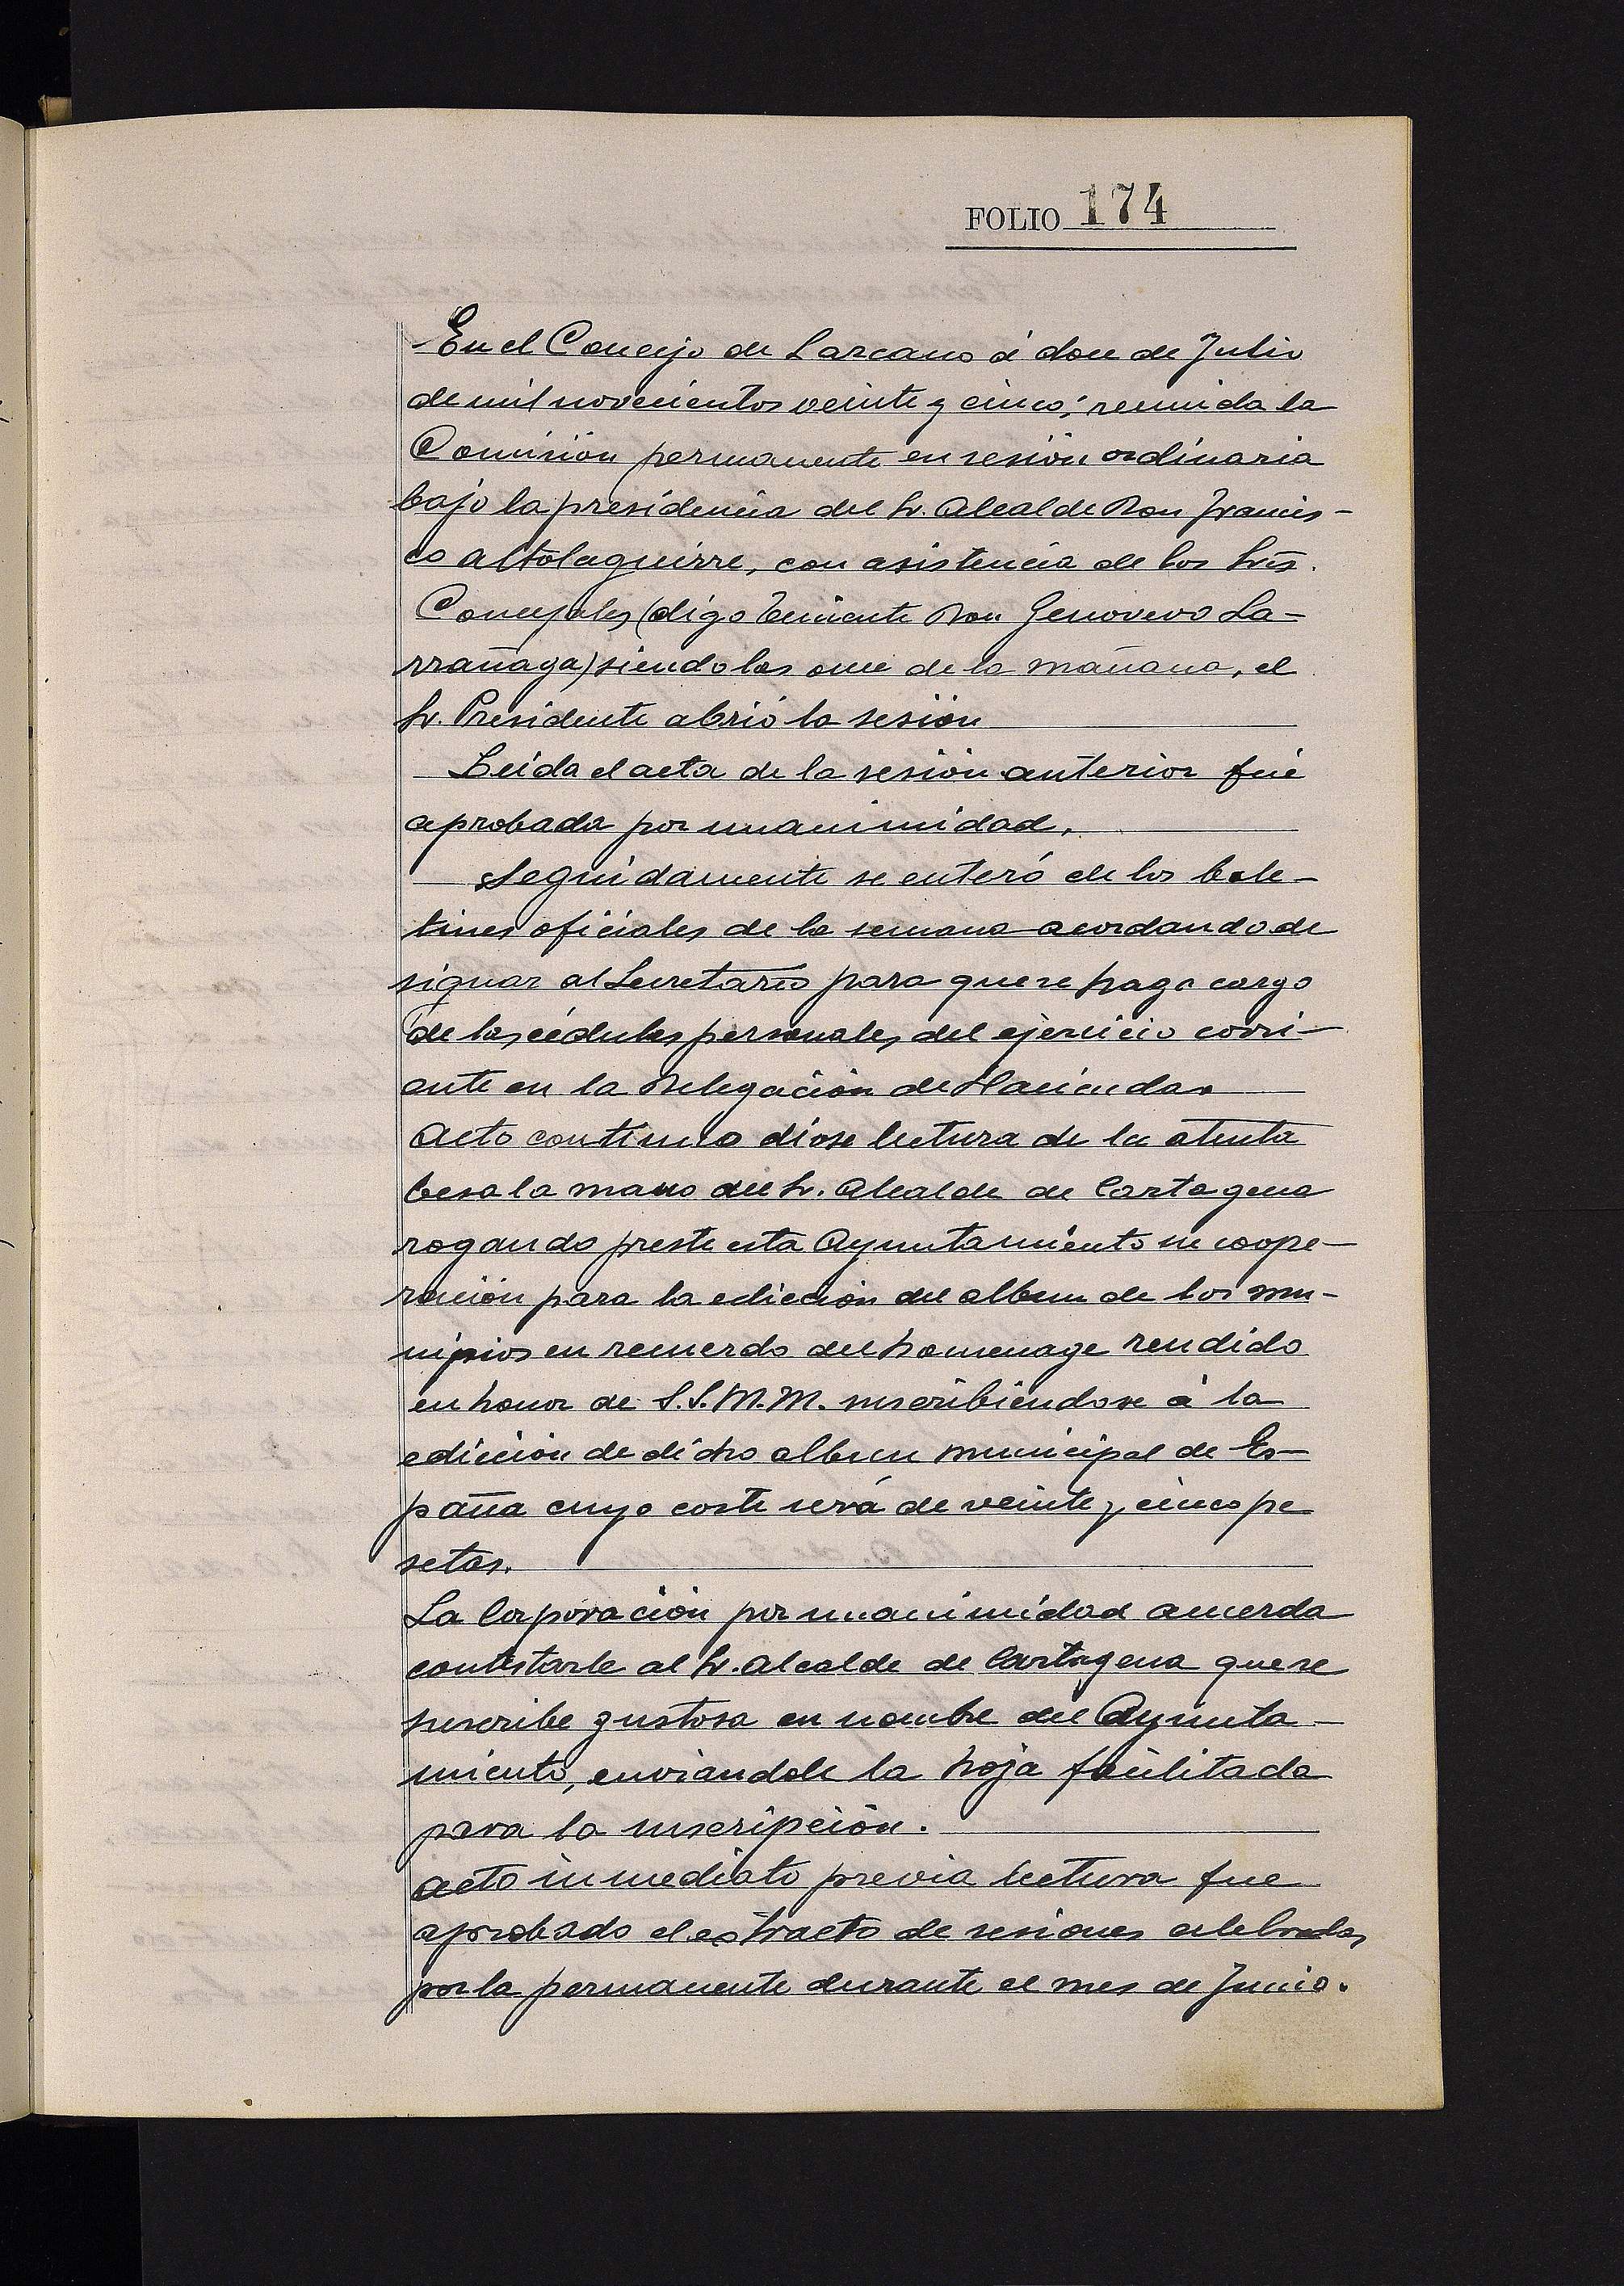 FOLIO 174
En el Concejo de Lazcano á doce de Julio
de mil novecientos veinte y cinco; reunida la
Comisión permanente en sesión ordinaria
bajo la presidencia del Sr. Alcalde Don Francis-
co Altolaguirre, con asistencia de los Srs.
Concejales (digo Teniente Don Genovevo La-
rrañaga) siendo las once de la mañana, el
Sr. Presidente abrió la sesión
Leida el acta de la sesión anterior fué
aprobada por unanimidad.
Seguidamente se enteró de los bole-
tines oficiales de la semana acordando de
signar al Secretario para que se haga cargo
de las cédulas personales del ejercicio corri-
ente en la Delegación de Hacienda.
Acto continuo dióse lectura de la atenta
besa la mano del Sr. Alcalde de Cartagena
rogando preste esta Ayuntamiento su coope-
ración para la edicción del album de los mu-
nipios en recuerdo del homenage rendido
en honor de S.S.M.M. inscribiendose á la
edición de dicho album municipal de Es-
paña cuyo coste será de veinte y cinco pe
setas.
La Corporación por unanimidad acuerda
contestarle al Sr. Alcalde de Cartagena que se
suscribe gustosa en nombre del Ayunta-
miento, enviandole la hoja facilitada
para la inscripción.
Acto inmediato previa lectura fue
aprobado el extracto de sesiones celebradas
por la permanente durante el mes de Junio.